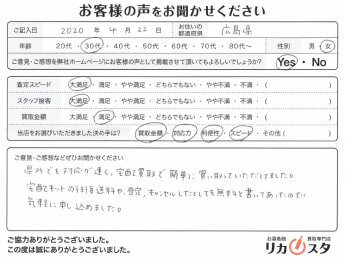 お客様の声をお聞かせください
ご記入日 2020年 4月 22日 お住いの都道府県 広島県
年齢 20代・30代・40代・50代・60代・70代・80代〜 性別 男・女
ご意見・ご感想を弊社ホームページにお客様の声として掲載させて頂いてもよろしいでしょうか? Yes・No
査定スピード 大満足・満足・やや満足・どちらでもない・やや不満・不満・( )
スタッフ接客 大満足・満足・やや満足・どちらでもない・やや不満・不満・( )
買取金額 大満足・満足・やや満足・どちらでもない・やや不満・不満・( )
当店をお選びいただきました決め手は? 買取金額・対応力・利便性・スピード・その他( )
ご意見・ご感想などぜひお聞かせください
県外でも対応が速く、宅配買取で簡単に買い取っていただけました。
宅配キットの往復送料や、査定、キャンセルしたとしても無料と書いてあったので
気軽に申し込めました。
ご協力ありがとうございました。
この度は誠にありがとうございました。
お酒高価 買取専門店
リカスタ